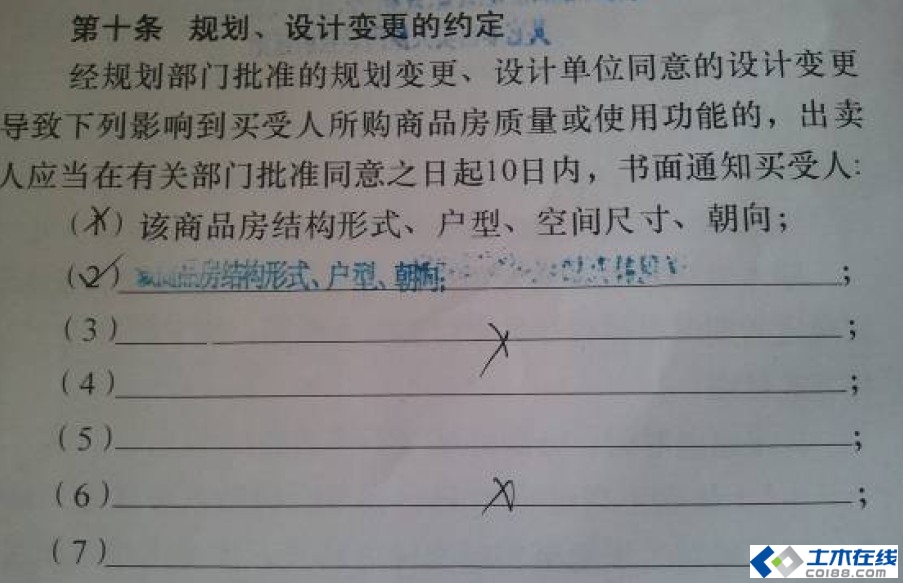 第十条 规划、设计变更的约定
经规划部门批准的规划变更、设计单位同意的设计变更
导致下列影响到买受人所购商品房质量或使用功能的，出卖
人应当在有关部门批准同意之日起10日内，书面通知买受人:
(X) 该商品房结构形式、户型、空间尺寸、朝向；
(2) 房结构形式、户型、朝向; ；
(3) X ；
(4) ；
(5) ；
(6) X ；
(7)
土木在线
COI88.COM